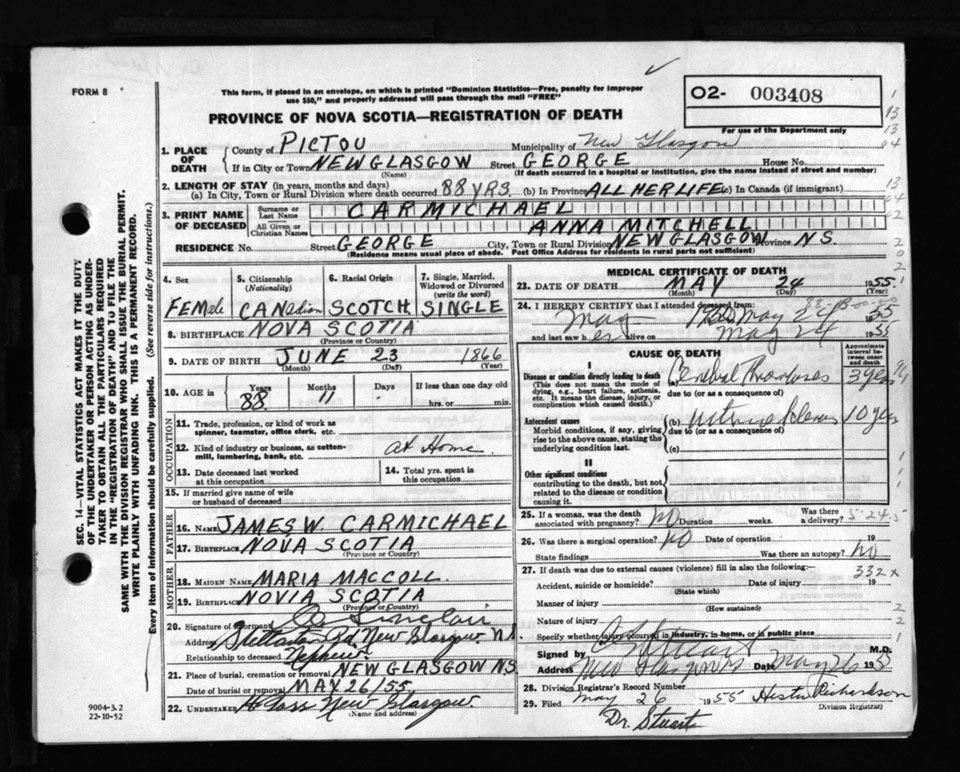 FORM 8
This form, if placed in an envelope, on which is printed "Dominion Statistics—Free, penalty for improper
use $50," and properly addressed will pass through the mail "FREE"
O2- 003408
For use of the Department only
PROVINCE OF NOVA SCOTIA—REGISTRATION OF DEATH
1. PLACE OF DEATH
County of PICTOU Municipality of New Glasgow
If in City or Town NEW GLASGOW Street GEORGE House No.
(Name) (If death occurred in a hospital or institution, give the name instead of street and number)
2. LENGTH OF STAY (in years, months and days)
(a) In City, Town or Rural Division where death occurred 88 YRS. (b) In Province ALL HER LIFE (c) In Canada (if immigrant)
3. PRINT NAME OF DECEASED
Surname or Last Name CARMICHAEL
All Given or Christian Names ANNA MITCHELL
RESIDENCE No. Street GEORGE City, Town or Rural Division NEW GLASGOW Province N.S.
(Residence means usual place of abode. Post Office Address for residents in rural parts not sufficient)
4. Sex FEMALE
5. Citizenship (Nationality) CANadian
6. Racial Origin SCOTCH
7. Single, Married, Widowed or Divorced (write the word) SINGLE
8. BIRTHPLACE NOVA SCOTIA
(Province or Country)
9. DATE OF BIRTH JUNE 23 1866
(Month) (Day) (Year)
10. AGE in Years 88 Months 11 Days If less than one day old
hrs. or min.
OCCUPATION
11. Trade, profession, or kind of work as
spinner, teamster, office clerk, etc.
12. Kind of industry or business, as cotton-
mill, lumbering, bank, etc. at Home
13. Date deceased last worked
at this occupation
14. Total yrs. spent in
this occupation
15. If married give name of wife
or husband of deceased
FATHER
16. NAME JAMES W. CARMICHAEL
17. BIRTHPLACE NOVA SCOTIA
(Province or Country)
MOTHER
18. MAIDEN NAME MARIA MACCOLL.
19. BIRTHPLACE NOVIA SCOTIA
(Province or Country)
20. Signature of Informant Sinclair
Address Stellarton Rd New Glasgow N.S.
Relationship to deceased Nephew
21. Place of burial, cremation or removal NEW GLASGOW NS
Date of burial or removal MAY 26/55
22. UNDERTAKER New Glasgow
(Name and address)
MEDICAL CERTIFICATE OF DEATH
23. DATE OF DEATH MAY 24 1955
(Month) (Day) (Year)
24. I HEREBY CERTIFY that I attended deceased from:
May to May 24 1955
and last saw her alive on May 24 1955
CAUSE OF DEATH
Approximate interval between onset and death
I
Disease or condition directly leading to death (a) Cerebral Thrombosis 3 yrs
(This does not mean the mode of dying, e.g., heart failure, asthenia, etc. It means the disease, injury, or complication which caused death.)
due to (or as a consequence of)
Antecedent causes (b) 10 yrs
Morbid conditions, if any, giving rise to the above cause, stating the underlying condition last.
due to (or as a consequence of)
(c)
II
Other significant conditions
contributing to the death, but not related to the disease or condition causing it.
25. If a woman, was the death
associated with pregnancy? NO Duration weeks. Was there a delivery?
26. Was there a surgical operation? NO Date of operation 19
State findings Was there an autopsy? NO
27. If death was due to external causes (violence) fill in also the following: 332 x
Accident, suicide or homicide? Date of injury 19
(State which)
Manner of injury
(How sustained)
Nature of injury
Specify whether injury occurred in industry, in home, or in public place
Signed by Stuart M.D.
Address New Glasgow NS Date May 26 195
28. Division Registrar's Record Number
29. Filed May 26 1955 Hester Richardson
Division Registrar
Dr. Stuart
SEC. 14—VITAL STATISTICS ACT MAKES IT THE DUTY
OF THE UNDERTAKER OR PERSON ACTING AS UNDER-
TAKER TO OBTAIN ALL THE PARTICULARS REQUIRED
IN THE "REGISTRATION OF DEATH" AND TO FILE THE
SAME WITH THE DIVISION REGISTRAR WHO SHALL ISSUE THE BURIAL PERMIT.
WRITE PLAINLY WITH UNFADING INK. THIS IS A PERMANENT RECORD.
Every item of information should be carefully supplied. (See reverse side for instructions.)
9004-3.2
22-10-52